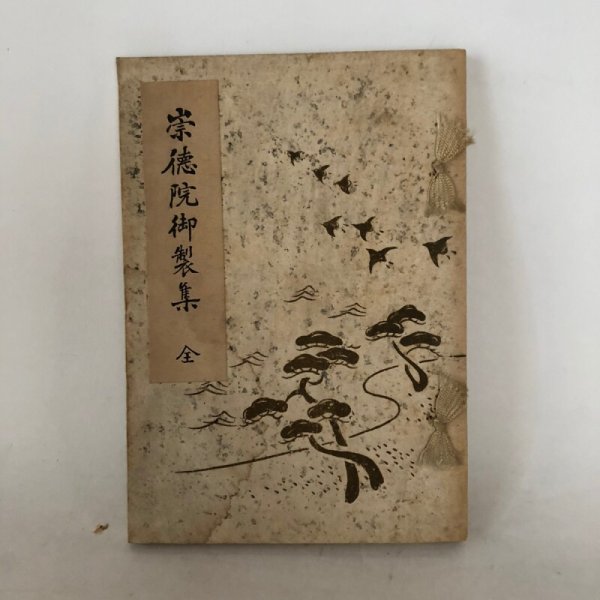 崇徳院御製集
全